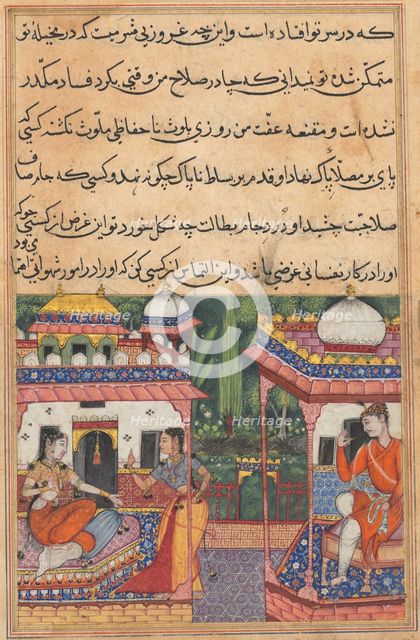 که در سر تو افتاده است و این چه غروریی مشرمیست که در مخیلهٔ تو
متمکن شده تو نمیدانی که چادر صلاح من وقتی بگرد فساد مکدر
نشده است و مقنعه عفت من روزی بلوث ناحفاظی ملوث نکشته کسی که
پای بر مصلا پاک نهاد او قدم بر بساط ناپاک چکونه نهد و کسی که جام صاف
صلاحیت چشید او درد جام بطالت چه شکل خورد تو این غرض از کسی جو که
او را در کار نفسانی غرضی باشد و این التماس از کسی کن که او را در امور شهوانی
Heritage
Heritage
Heritage
Heritage
Heritage
Heritage